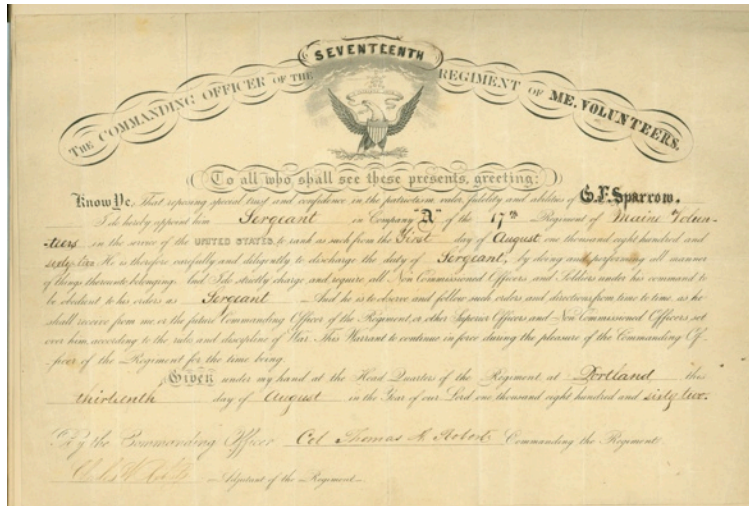 THE COMMANDING OFFICER OF THE SEVENTEENTH REGIMENT OF ME. VOLUNTEERS.
To all who shall see these presents, greeting:
Know Ye, That reposing special trust and confidence in the patriotism, valor, fidelity and abilities of G.F. Sparrow.
I do hereby appoint him Sergeant in Company "A" of the 17th Regiment of Maine Volun-
-teers in the service of the UNITED STATES, to rank as such from the First day of August one thousand eight hundred and
sixty two He is therefore carefully and diligently to discharge the duty of Sergeant, by doing and performing all manner
of things thereunto belonging. And I do strictly charge and require all Non Commissioned Officers and Soldiers under his command to
be obedient to his orders as Sergeant And he is to observe and follow such orders and directions from time to time, as he
shall receive from me, or the future Commanding Officer of the Regiment, or other Superior Officers and Non Commissioned Officers set
over him, according to the rules and discipline of War. This Warrant to continue in force during the pleasure of the Commanding Of-
ficer of the Regiment for the time being.
Given under my hand at the Head Quarters of the Regiment at Portland this
thirteenth day of August in the Year of our Lord one thousand eight hundred and sixty two.
By the Commanding Officer Col Thomas A. Roberts Commanding the Regiment.
Adjutant of the Regiment